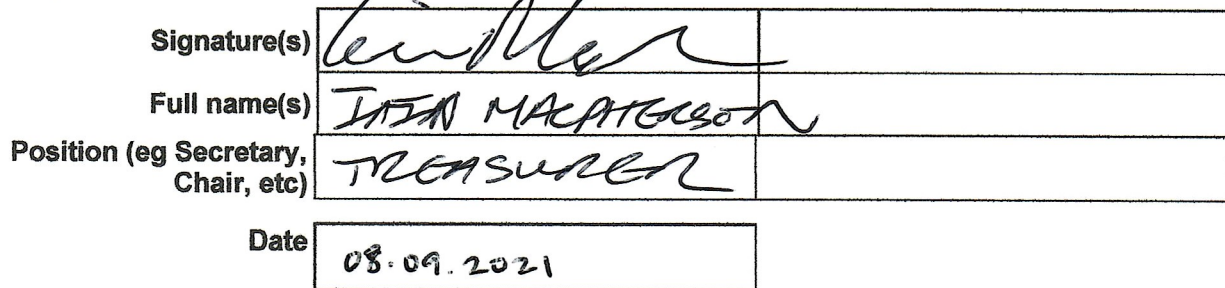 Signature(s)
Full name(s) IAIN MACPHERSON
Position (eg Secretary,
Chair, etc) TREASURER
Date 08.09.2021